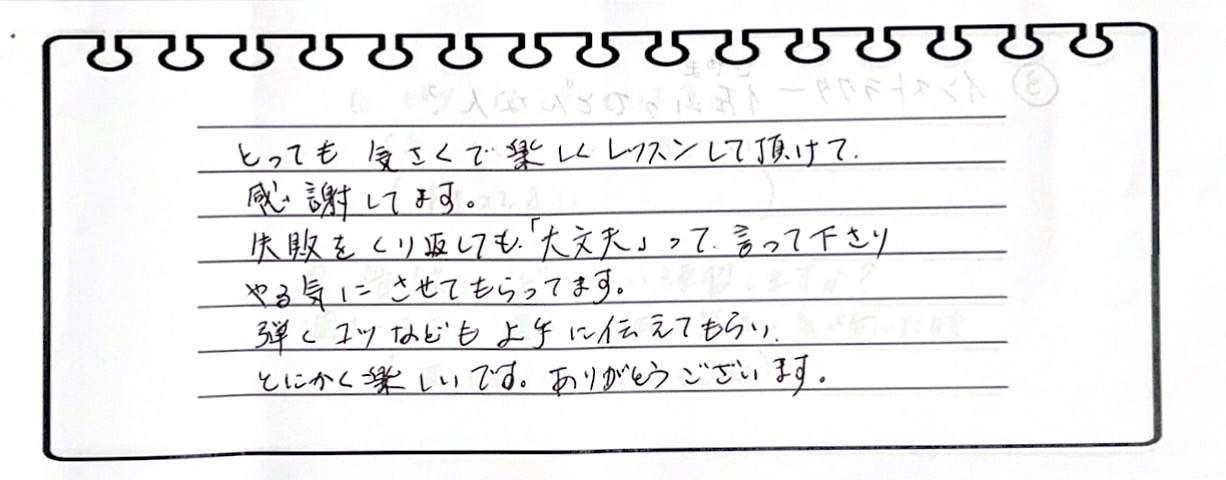 とっても 気さくで楽しくレッスンして頂けて、
感謝してます。
失敗をくり返しても、「大丈夫」って、言って下さり
やる気にさせてもらってます。
弾くコツなども上手に伝えてもらい、
とにかく楽しいです。ありがとうございます。